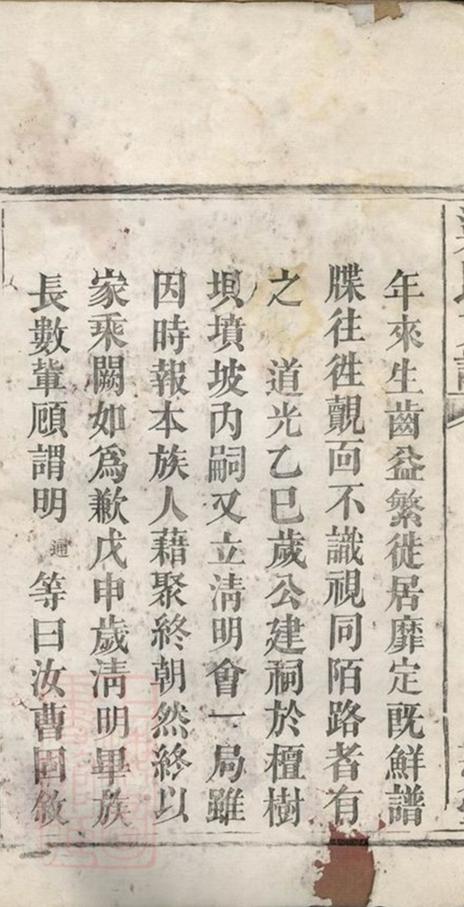 年來生齒益繁徙居靡定既鮮譜
牒往徃覿面不識視同陌路者有
之 道光乙巳歲公建祠於檀樹
垻墳坡內嗣又立淸明會一局雖
因時報本族人藉聚終朝然終以
家乘闕如爲歉戊申歲淸明畢族
長數軰顧謂明通等曰汝曹固敘